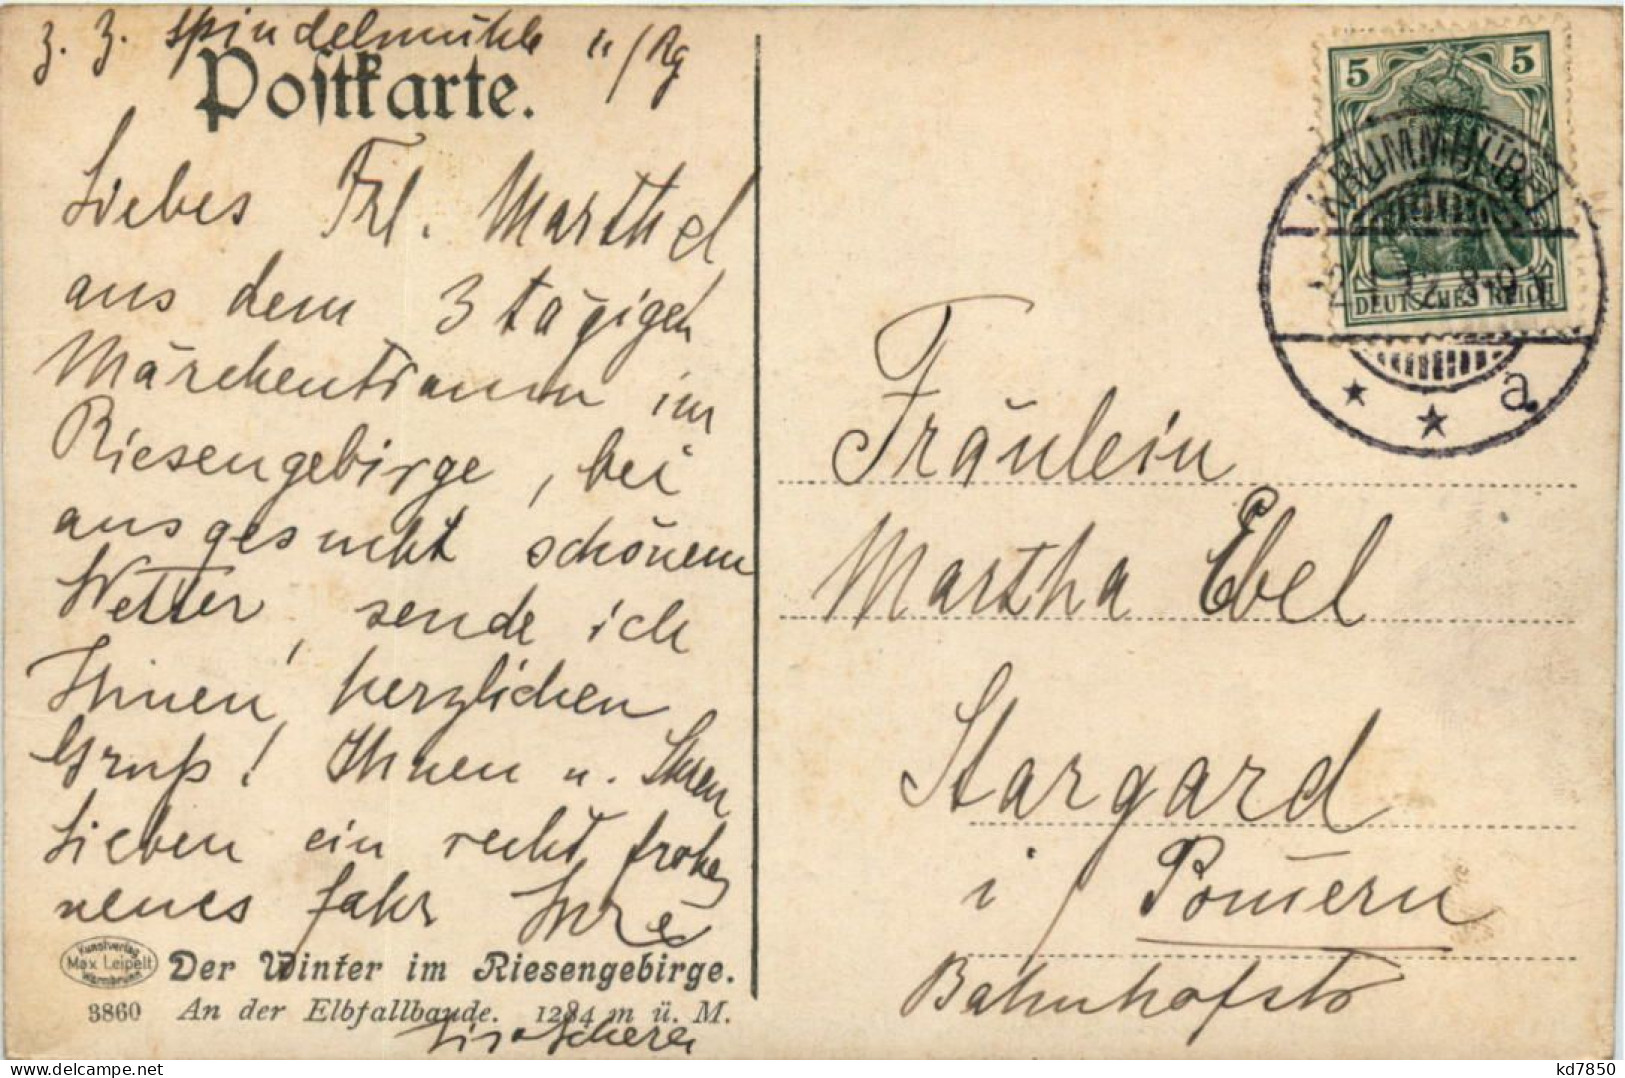 z. Z. Spindelmühle i/Rg
Postkarte.
Liebes Frl. Marthel
aus dem 3 tägigen
Märchentraum im
Riesengebirge, bei
ausgesucht schönem
Wetter, sende ich
Ihnen herzlichen
Gruß! Ihnen u. Ihren
Lieben ein recht frohes
neues Jahr Ihre
Kunstverlag
Max Leipelt
Warmbrunn
Der Winter im Riesengebirge.
3860 An der Elbfallbaude. 1284 m ü. M.
5 5
DEUTSCHES REICH
KRUMMHÜBEL
a.
Fräulein
Martha Ebel
Stargard
i/ Pomern
Bahnhofstr
kd7850